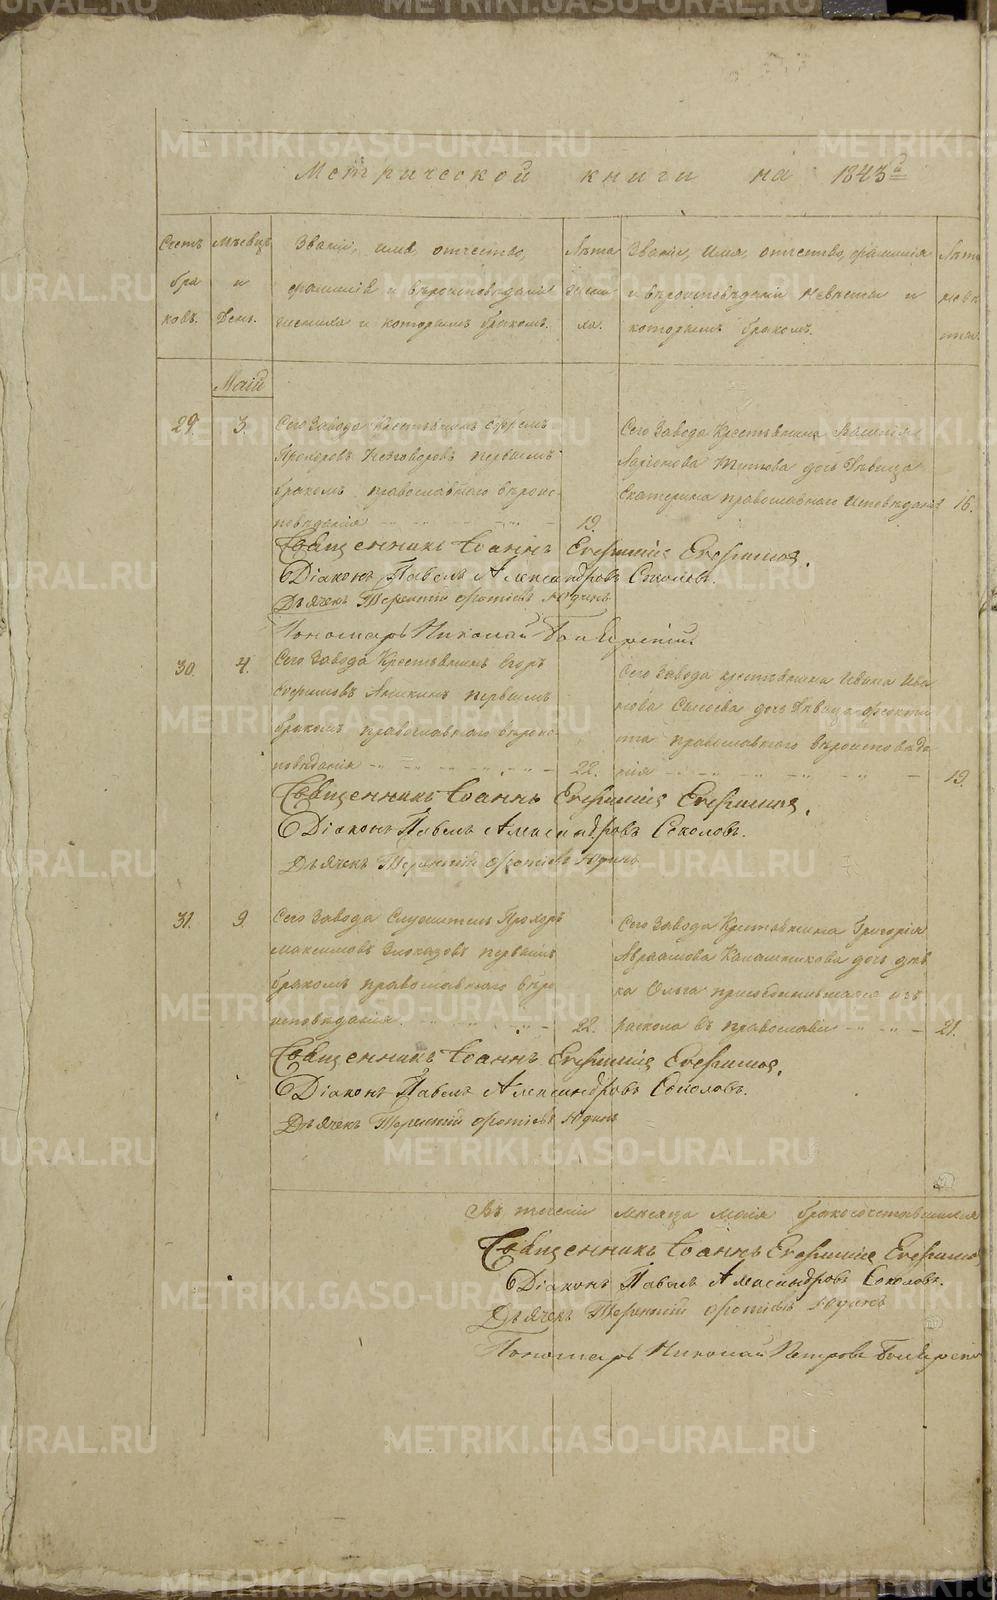 Метрической книги на 1843й
Счетъ
бра
ковъ.
Мѣсяцъ
и
День.
Званіе, имя, отчество,
фамилія и вѣроисповѣданіе
жениха и которымъ бракомъ.
Лѣта
жени
ха.
Званіе, имя, отчество, фамилія
и вѣроисповѣданіе невѣсты и
которымъ бракомъ.
Лѣта
невѣ
сты.
Маій
29. 3. Сего Завода Крестьянинъ Ефремъ
Прохоровъ первымъ
бракомъ, православнаго вѣроис-
повѣданія 19.
Сего Завода Крестьянина Василія
Ларіонова Титова дочь Дѣвица
Екатерина православнаго Исповѣданія 16.
Священникъ Іоаннъ Евфимiевъ
Діаконъ Павелъ Александровъ Соколовъ.
Дьячекъ Терентій Фотіевъ Юдинъ
Пономарь Николай
30. 4. Сего Завода Крестьянинъ Егоръ
Евфимовъ первымъ
бракомъ православнаго вѣроис-
повѣданія 22.
Сего Завода крестьянина Ивана Ива
нова Сысоева дочь Дѣвица Феокти
ста православнаго вѣроисповѣда
нія 19.
Священникъ Іоаннъ
Діаконъ Павелъ Александровъ Соколовъ.
Дьячекъ Терентій Фотіевъ Юдинъ
31. 9. Сего Завода Служитель Прохоръ
Максимовъ Злоказовъ первымъ
бракомъ православнаго вѣро
исповѣданія 22.
Сего Завода Крестьянина Григорія
Авраамова Калашникова дочь дѣв
ка Ольга присоединившаяся изъ
раскола въ православіе 21.
Священникъ Іоаннъ
Діаконъ Павелъ Александровъ Соколовъ.
Дьячекъ Терентій Фотіевъ Юдинъ
Въ теченіи месяца маія бракосочетавшихся
Священникъ Іоаннъ
Діаконъ Павелъ Александровъ Соколовъ.
Дьячекъ Терентій Фотіевъ Юдинъ
Пономарь Николай Петровъ
METRIKI.GASO-URAL.RU